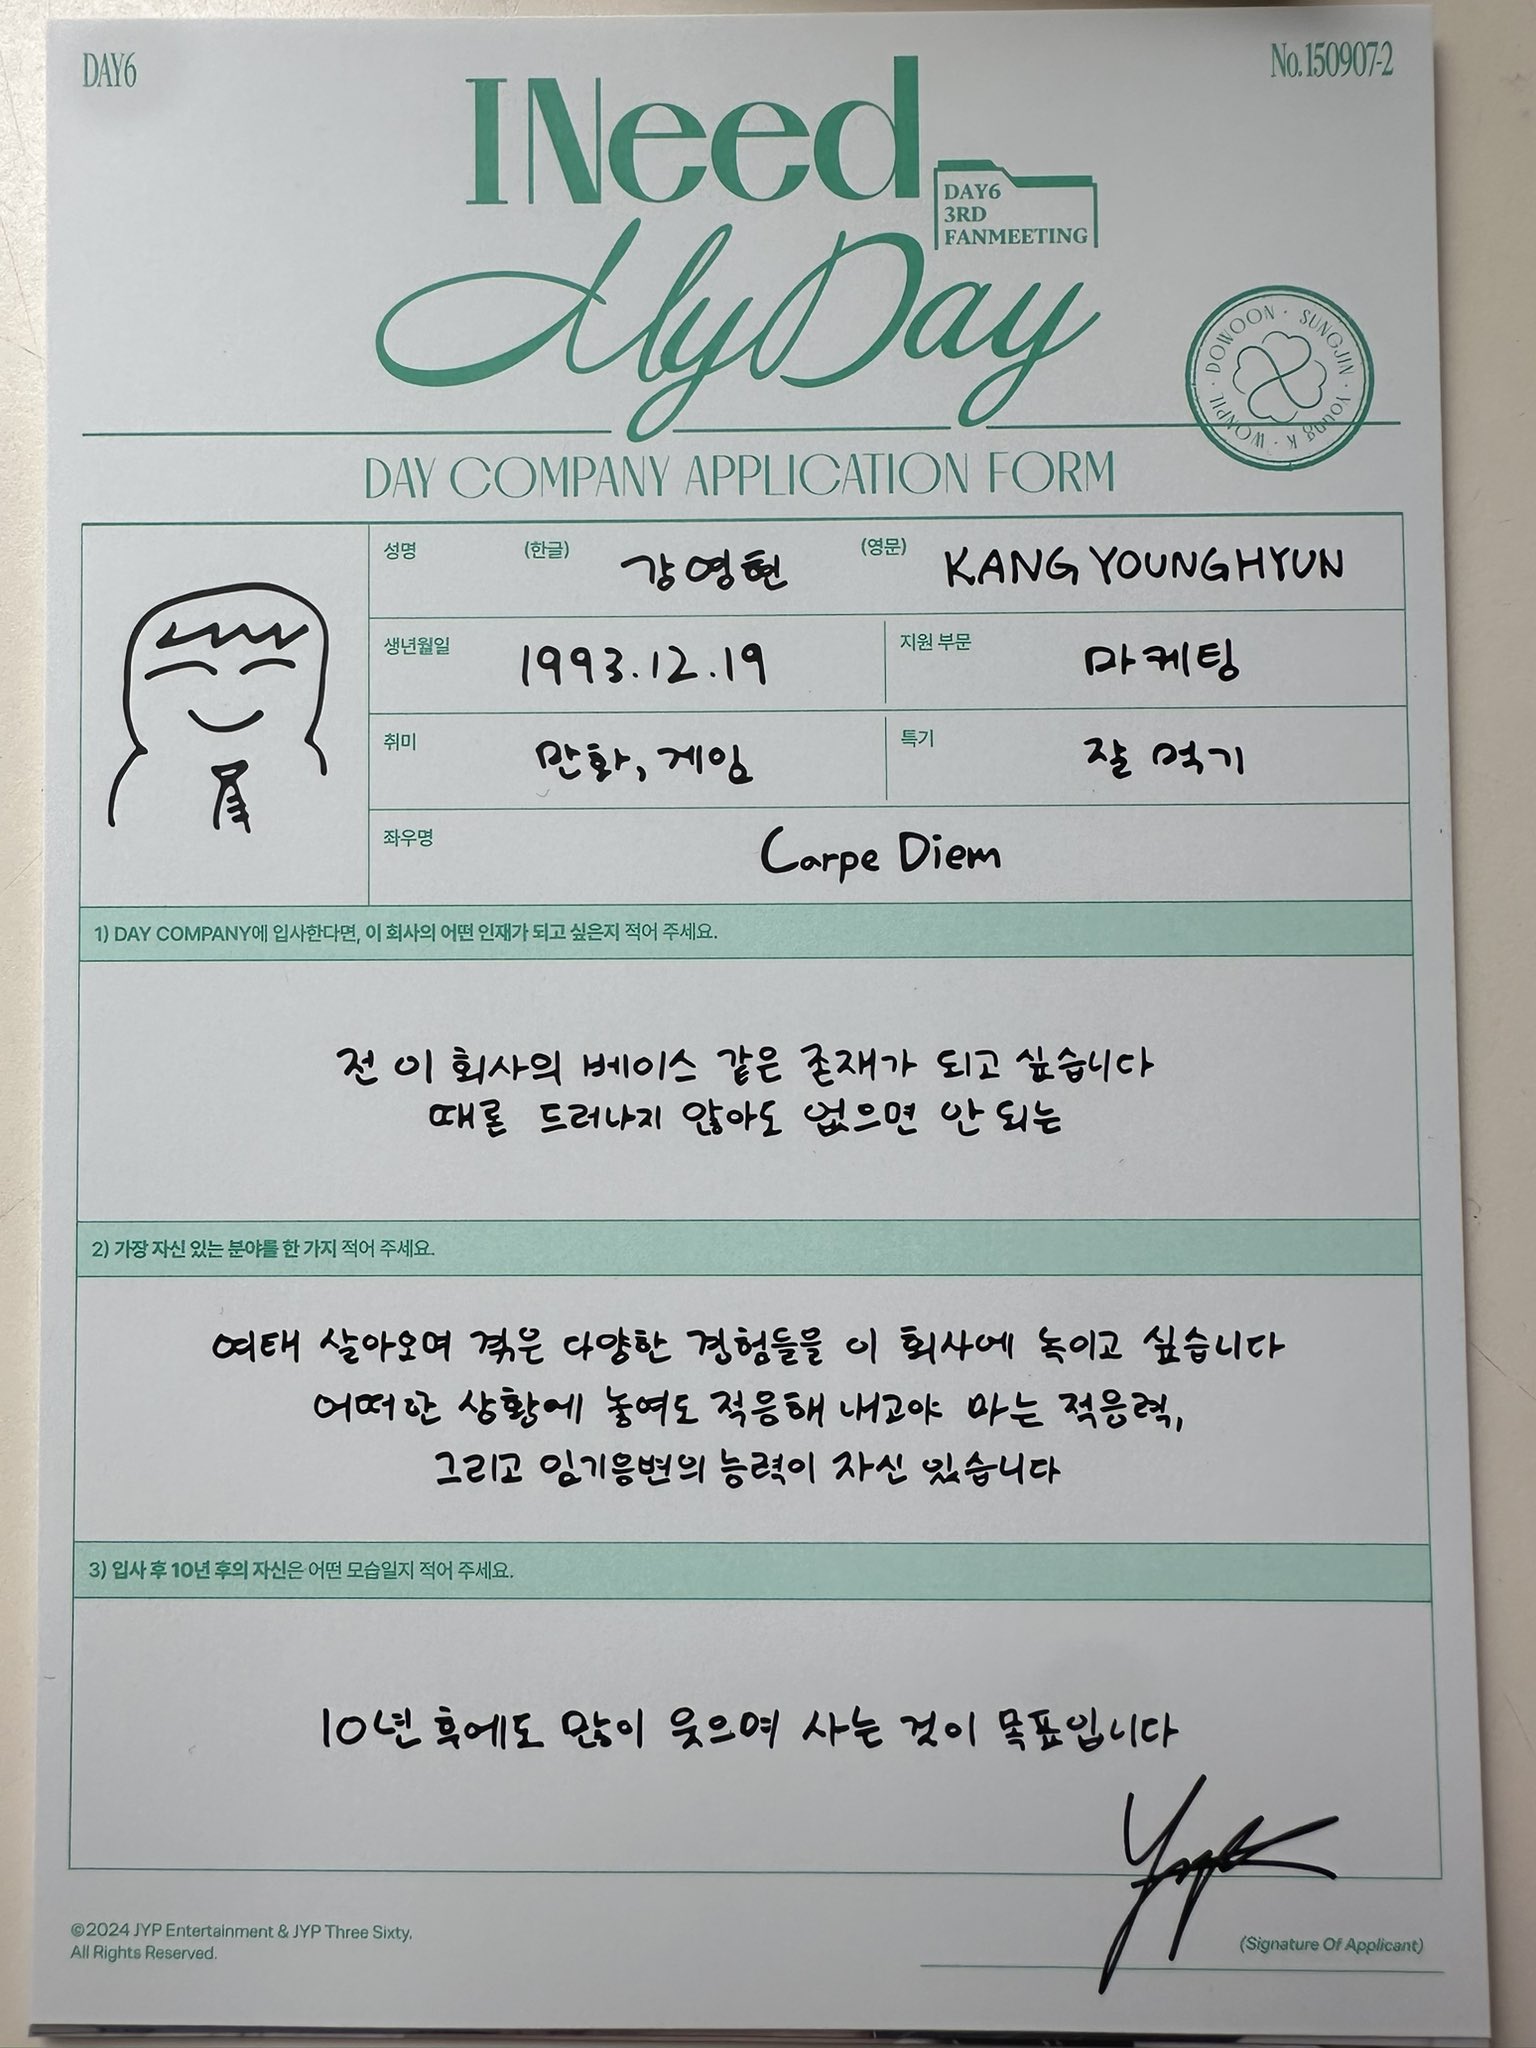 DAY6
No.150907-2
I Need
My Day
DAY6
3RD
FANMEETING
DOWOON · SUNGJIN · Young K · WONPIL ·
DAY COMPANY APPLICATION FORM
성명 (한글) 강영현 (영문) KANG YOUNGHYUN
생년월일 1993.12.19 지원 부문 마케팅
취미 만화, 게임 특기 잘 먹기
좌우명 Carpe Diem
1) DAY COMPANY에 입사한다면, 이 회사의 어떤 인재가 되고 싶은지 적어 주세요.
전 이 회사의 베이스 같은 존재가 되고 싶습니다
때론 드러나지 않아도 없으면 안 되는
2) 가장 자신 있는 분야를 한 가지 적어 주세요.
여태 살아오며 겪은 다양한 경험들을 이 회사에 녹이고 싶습니다
어떠한 상황에 놓여도 적응해 내고야 마는 적응력,
그리고 임기응변의 능력이 자신 있습니다
3) 입사 후 10년 후의 자신은 어떤 모습일지 적어 주세요.
10년 후에도 많이 웃으며 사는 것이 목표입니다
©2024 JYP Entertainment & JYP Three Sixty.
All Rights Reserved.
(Signature Of Applicant)